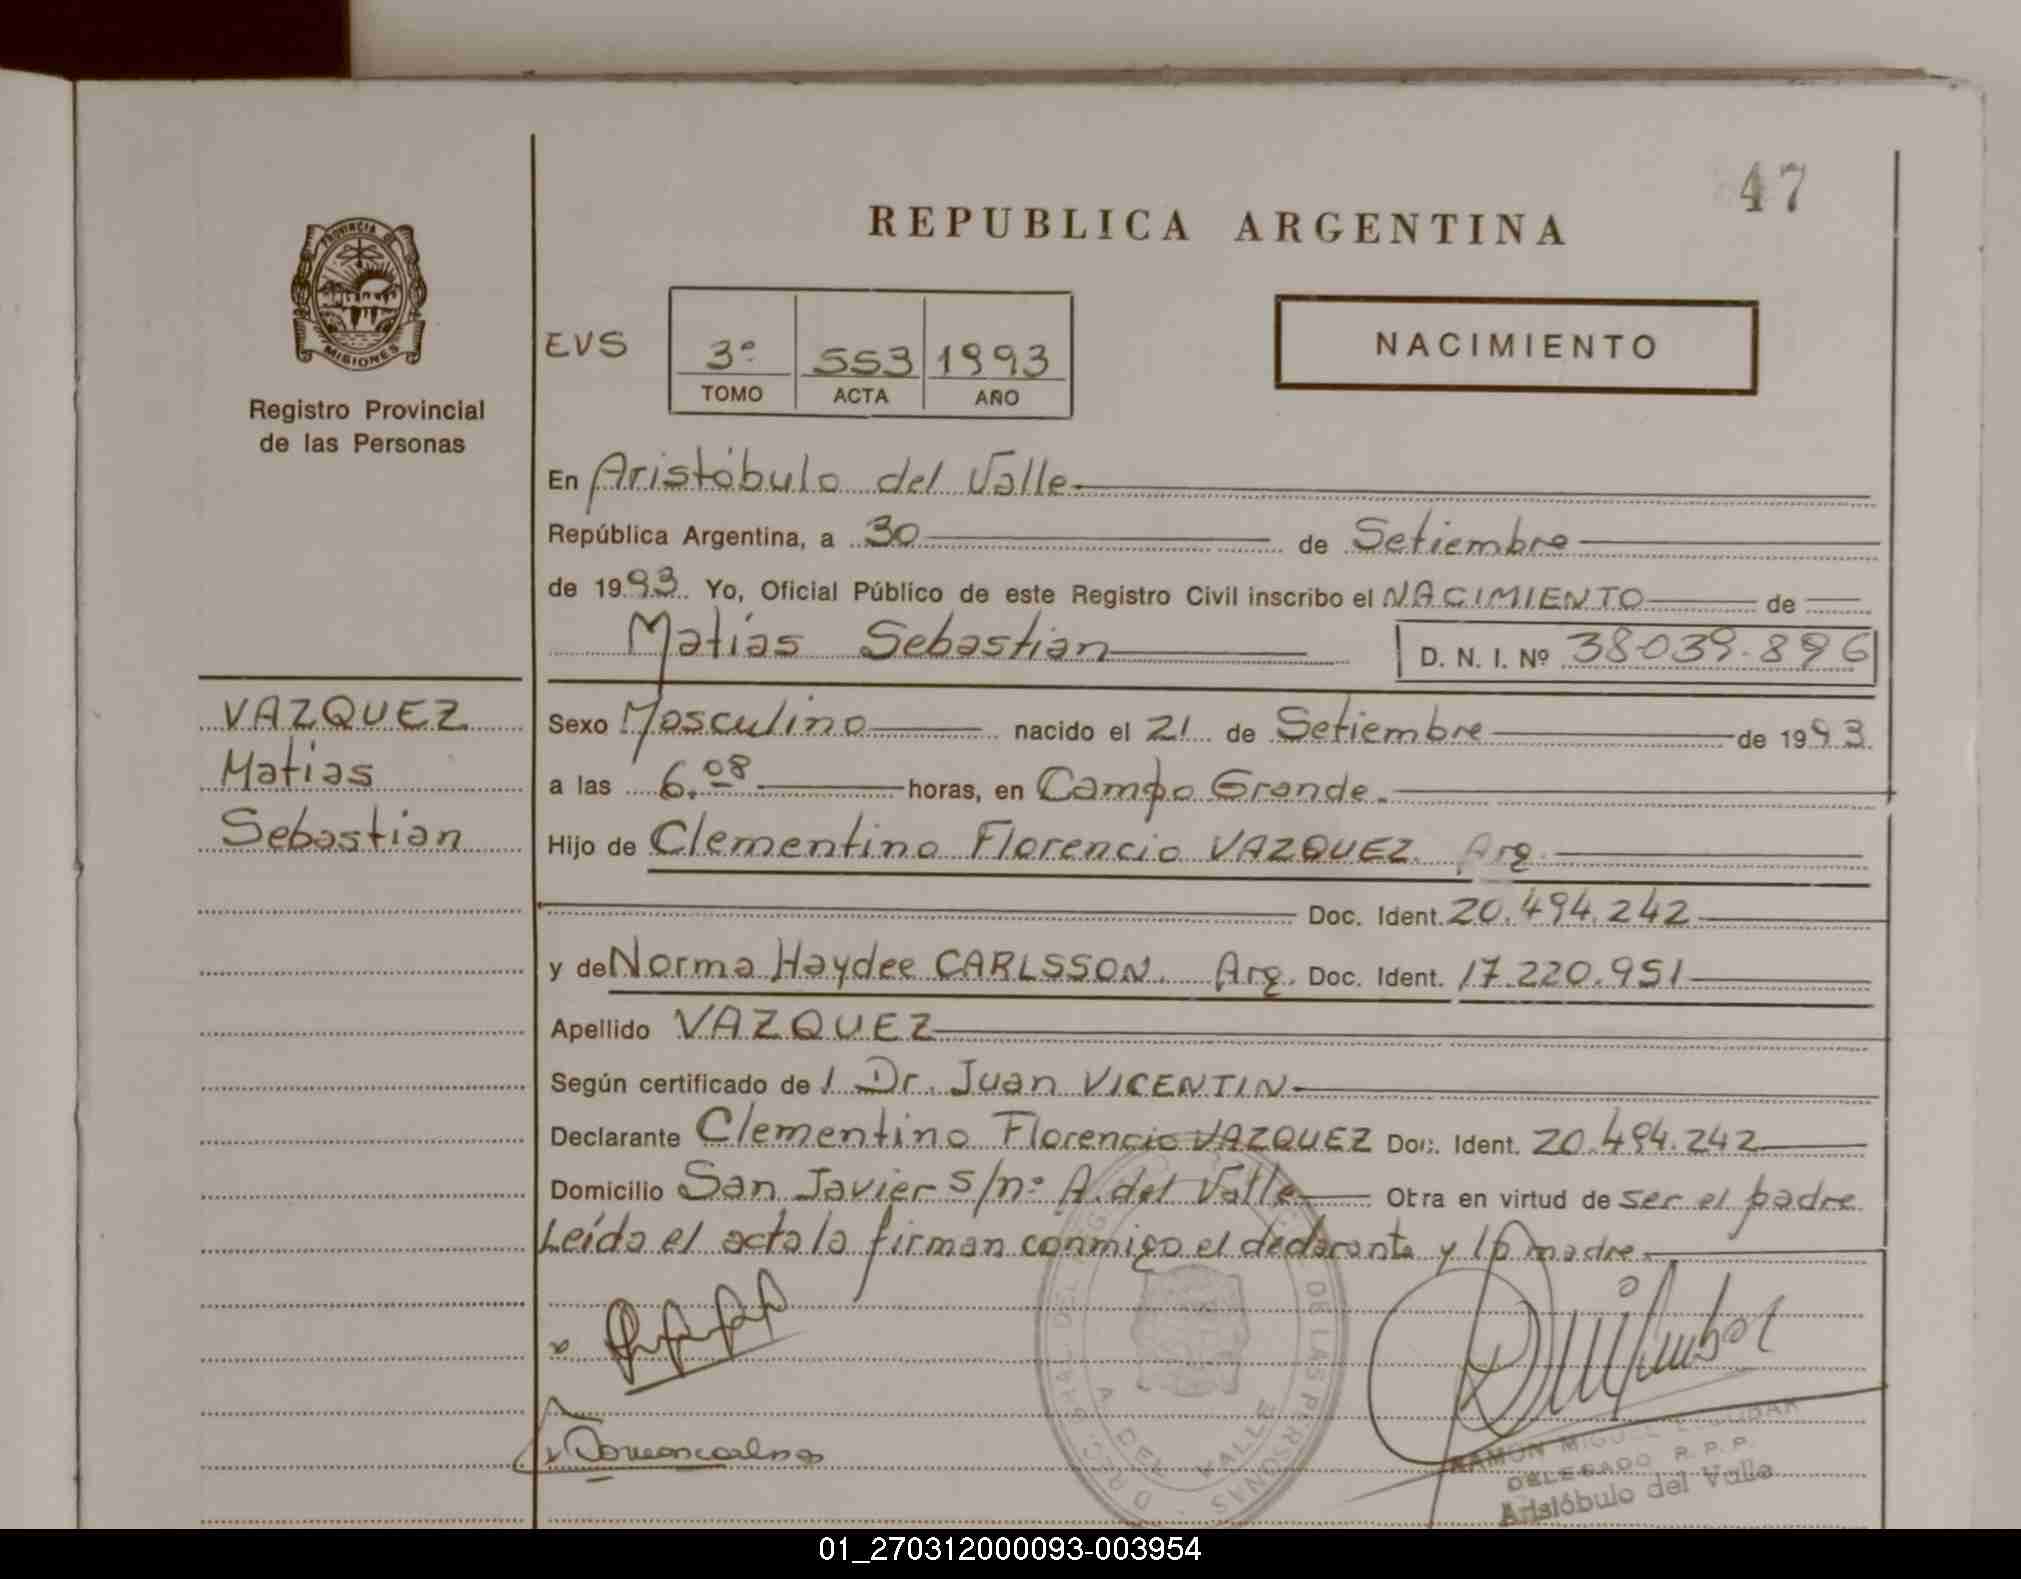 47
REPUBLICA ARGENTINA
PROVINCIA DE
MISIONES
Registro Provincial
de las Personas
EVS
3º 553 1993
TOMO ACTA AÑO
NACIMIENTO
En Aristóbulo del Valle
República Argentina, a 30 de Setiembre
de 1993. Yo, Oficial Público de este Registro Civil inscribo el NACIMIENTO de
Matías Sebastian D. N. I. Nº 38.039.896
VAZQUEZ
Matias
Sebastian
Sexo Masculino nacido el 21 de Setiembre de 1993.
a las 6.08 horas, en Campo Grande.
Hijo de Clementino Florencio VAZQUEZ Arg.
Doc. Ident. 20.494.242
y de Norma Haydee CARLSSON. Arg. Doc. Ident. 17.220.951
Apellido VAZQUEZ
Según certificado de / Dr. Juan VICENTIN
Declarante Clementino Florencio VAZQUEZ Doc. Ident. 20.494.242
Domicilio San Javier s/nº A. del Valle Otra en virtud de ser el padre
Leída el acta la firman conmigo el declarante y la madre.
DE LAS PERSONAS
A. DEL VALLE
RAMON MIGUEL ESCOBAR
DELEGADO R. P. P.
Aristóbulo del Valle
01_270312000093-003954